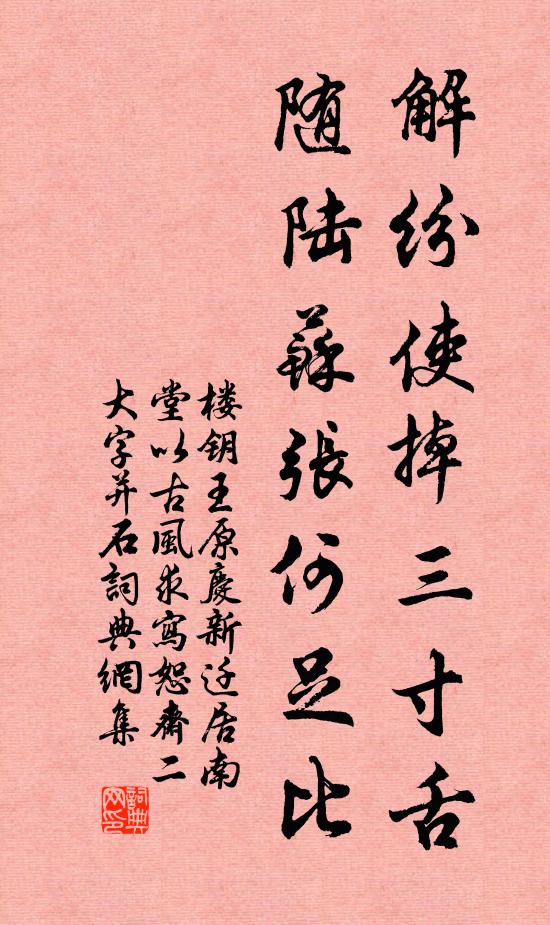 解紛使掉三寸舌
随陆蘇張何足比
楼钥王原慶新迁居南
堂以古風求寫恕齋二
大字并石詞典網集
詞典
网印